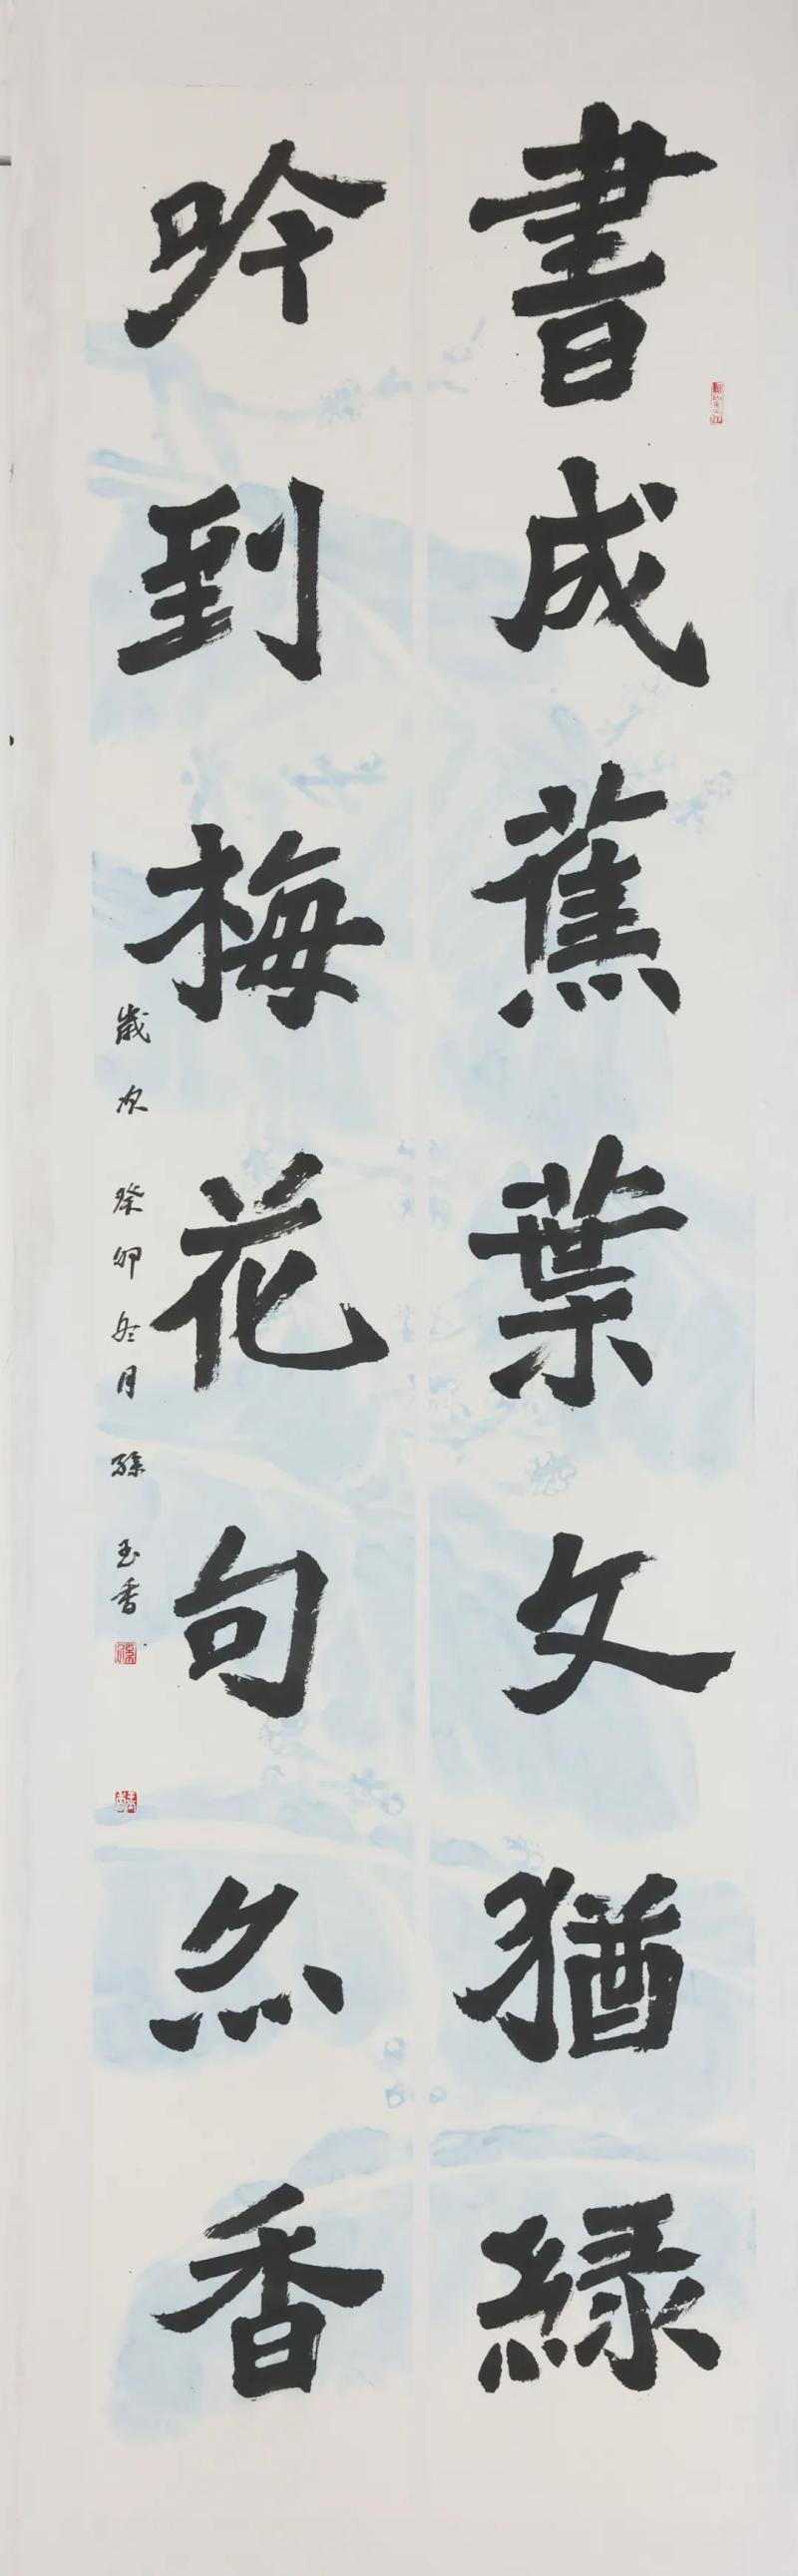 書成蕉葉文猶綠
吟到梅花句亦香
歲次癸卯冬月孫玉香